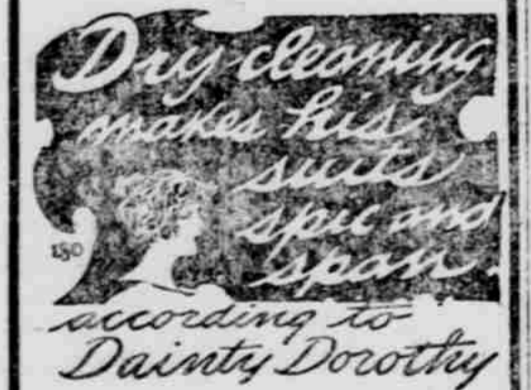 Dry cleaning
makes his
suits
spic and
span.
150
according to
Dainty Dorothy